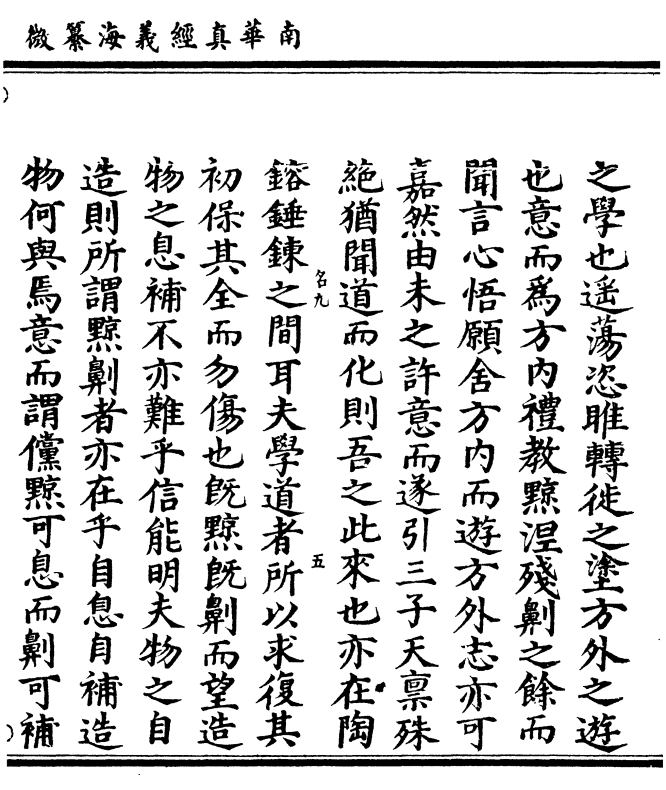 南華真經義海纂微
之學也遥蕩恣睢轉徙之塗方外之遊
也意而爲方内禮教黥涅殘劓之餘而
聞言心悟願舍方内而遊方外志亦可
嘉然由未之許意而遂引三子天稟殊
絶猶聞道而化則吾之此來也亦在陶
鎔錘鍊之間耳夫學道者所以求復其
名九
五
初保其全而勿傷也旣黥旣劓而望造
物之息補不亦難乎信能明夫物之自
造則所謂黥劓者亦在乎自息自補造
物何與焉意而謂儻黥可息而劓可補